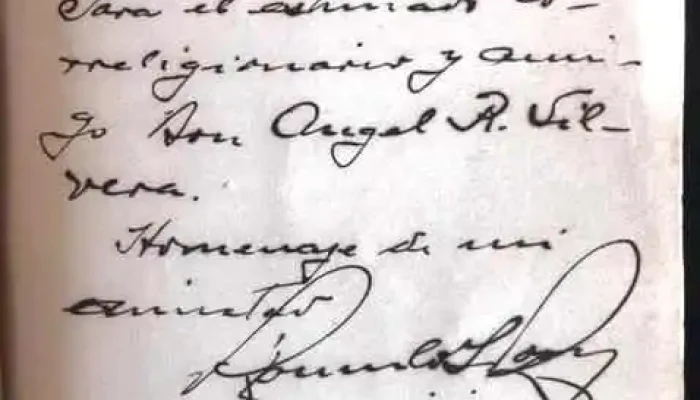 Para el estimado co-
rreligionario y ami-
go Don Angel R. Sil-
vera.
Homenaje de mi
amistad
Rómulo S.